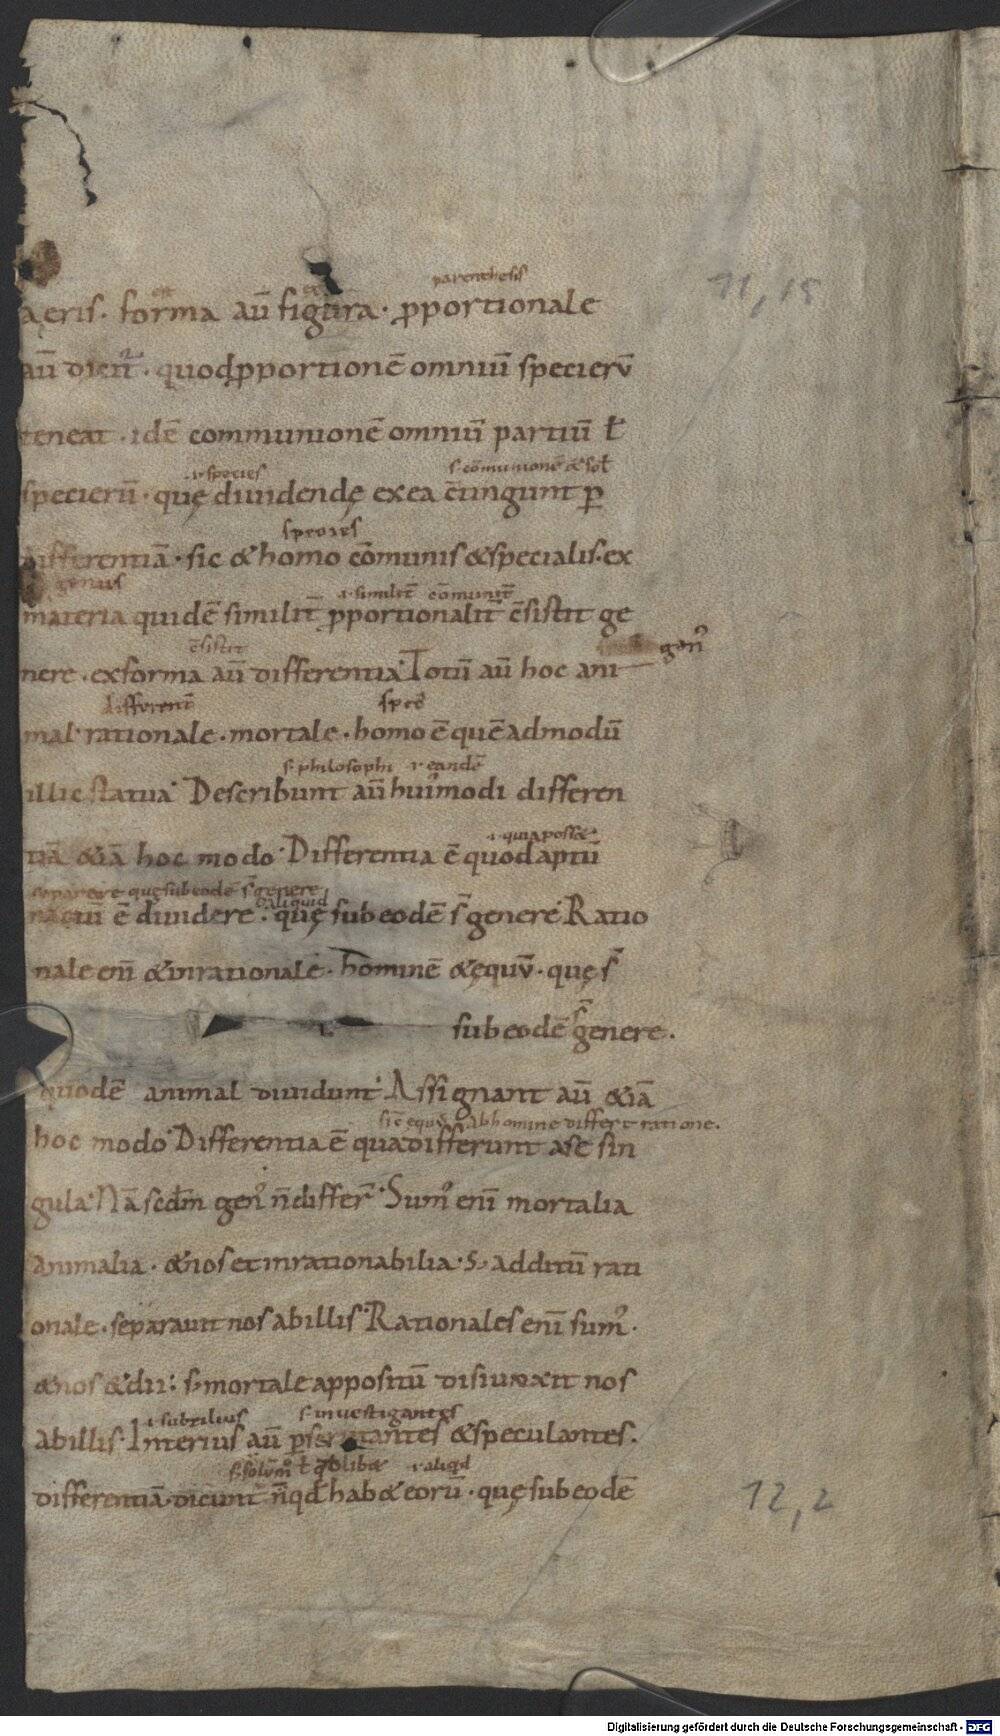 parenthesis
aeris. forma aū figura. ꝓportionale
11,15
aū dicīt. quod ꝓportionē omniū specierū
teneat. idē communionē omniū partiū ł
.i. species s. cōmunionē &
specierū. quę diuidendę ex ea cc̄tingunt ꝑ
species
differentiā. sic & homo cōmunis & specialis. ex
genus .i. similit̄ cōmunit̄
materia quidē similit̄ ꝓportionalit̄ c̄sistit ge
c̄sistit gen᾿
nere. ex forma aū differentia. Totū aū hoc ani
different̄ spēs
mal. rationale. mortale. homo ē quēadmodū
s. philosophi .i. eandē
illic statua. Describunt aū hui᾿modi differen
.i. quia posse
tiā &iā hoc modo. Differentia ē quod aptū
separare quę sub eodē s̄ genere aliquid
natū ē diuidere. quę sub eodē s̄ genere. Ratio
nale enī & inrationale. hominē & equū. quę s̄
sub eodē s̄ genere.
quodē animal diuidunt. Assignant aū &iā
sic̄ equus ab homine differt ratione.
hoc modo. Differentia ē qua differunt a se sin
gula. Nā scdm gen᾿ n̄ differ̄. Sum᾿ enī mortalia
animalia. & nos et inrationabilia. s; additū rati
onale. separauit nos ab illis. Rationales enī sum᾿.
& nos & dii. s; mortale appositū disiunxit nos
.i. subtilius s. inuestigantes
ab illis. Interius aū ꝑscrutantes & speculantes.
s. solūm᾿ ł qdlib& .i. aliqd
differentiā. dicunt n̄ qđ hab& eorū. quę sub eodē
12,2
Digitalisierung gefördert durch die Deutsche Forschungsgemeinschaft - DFG